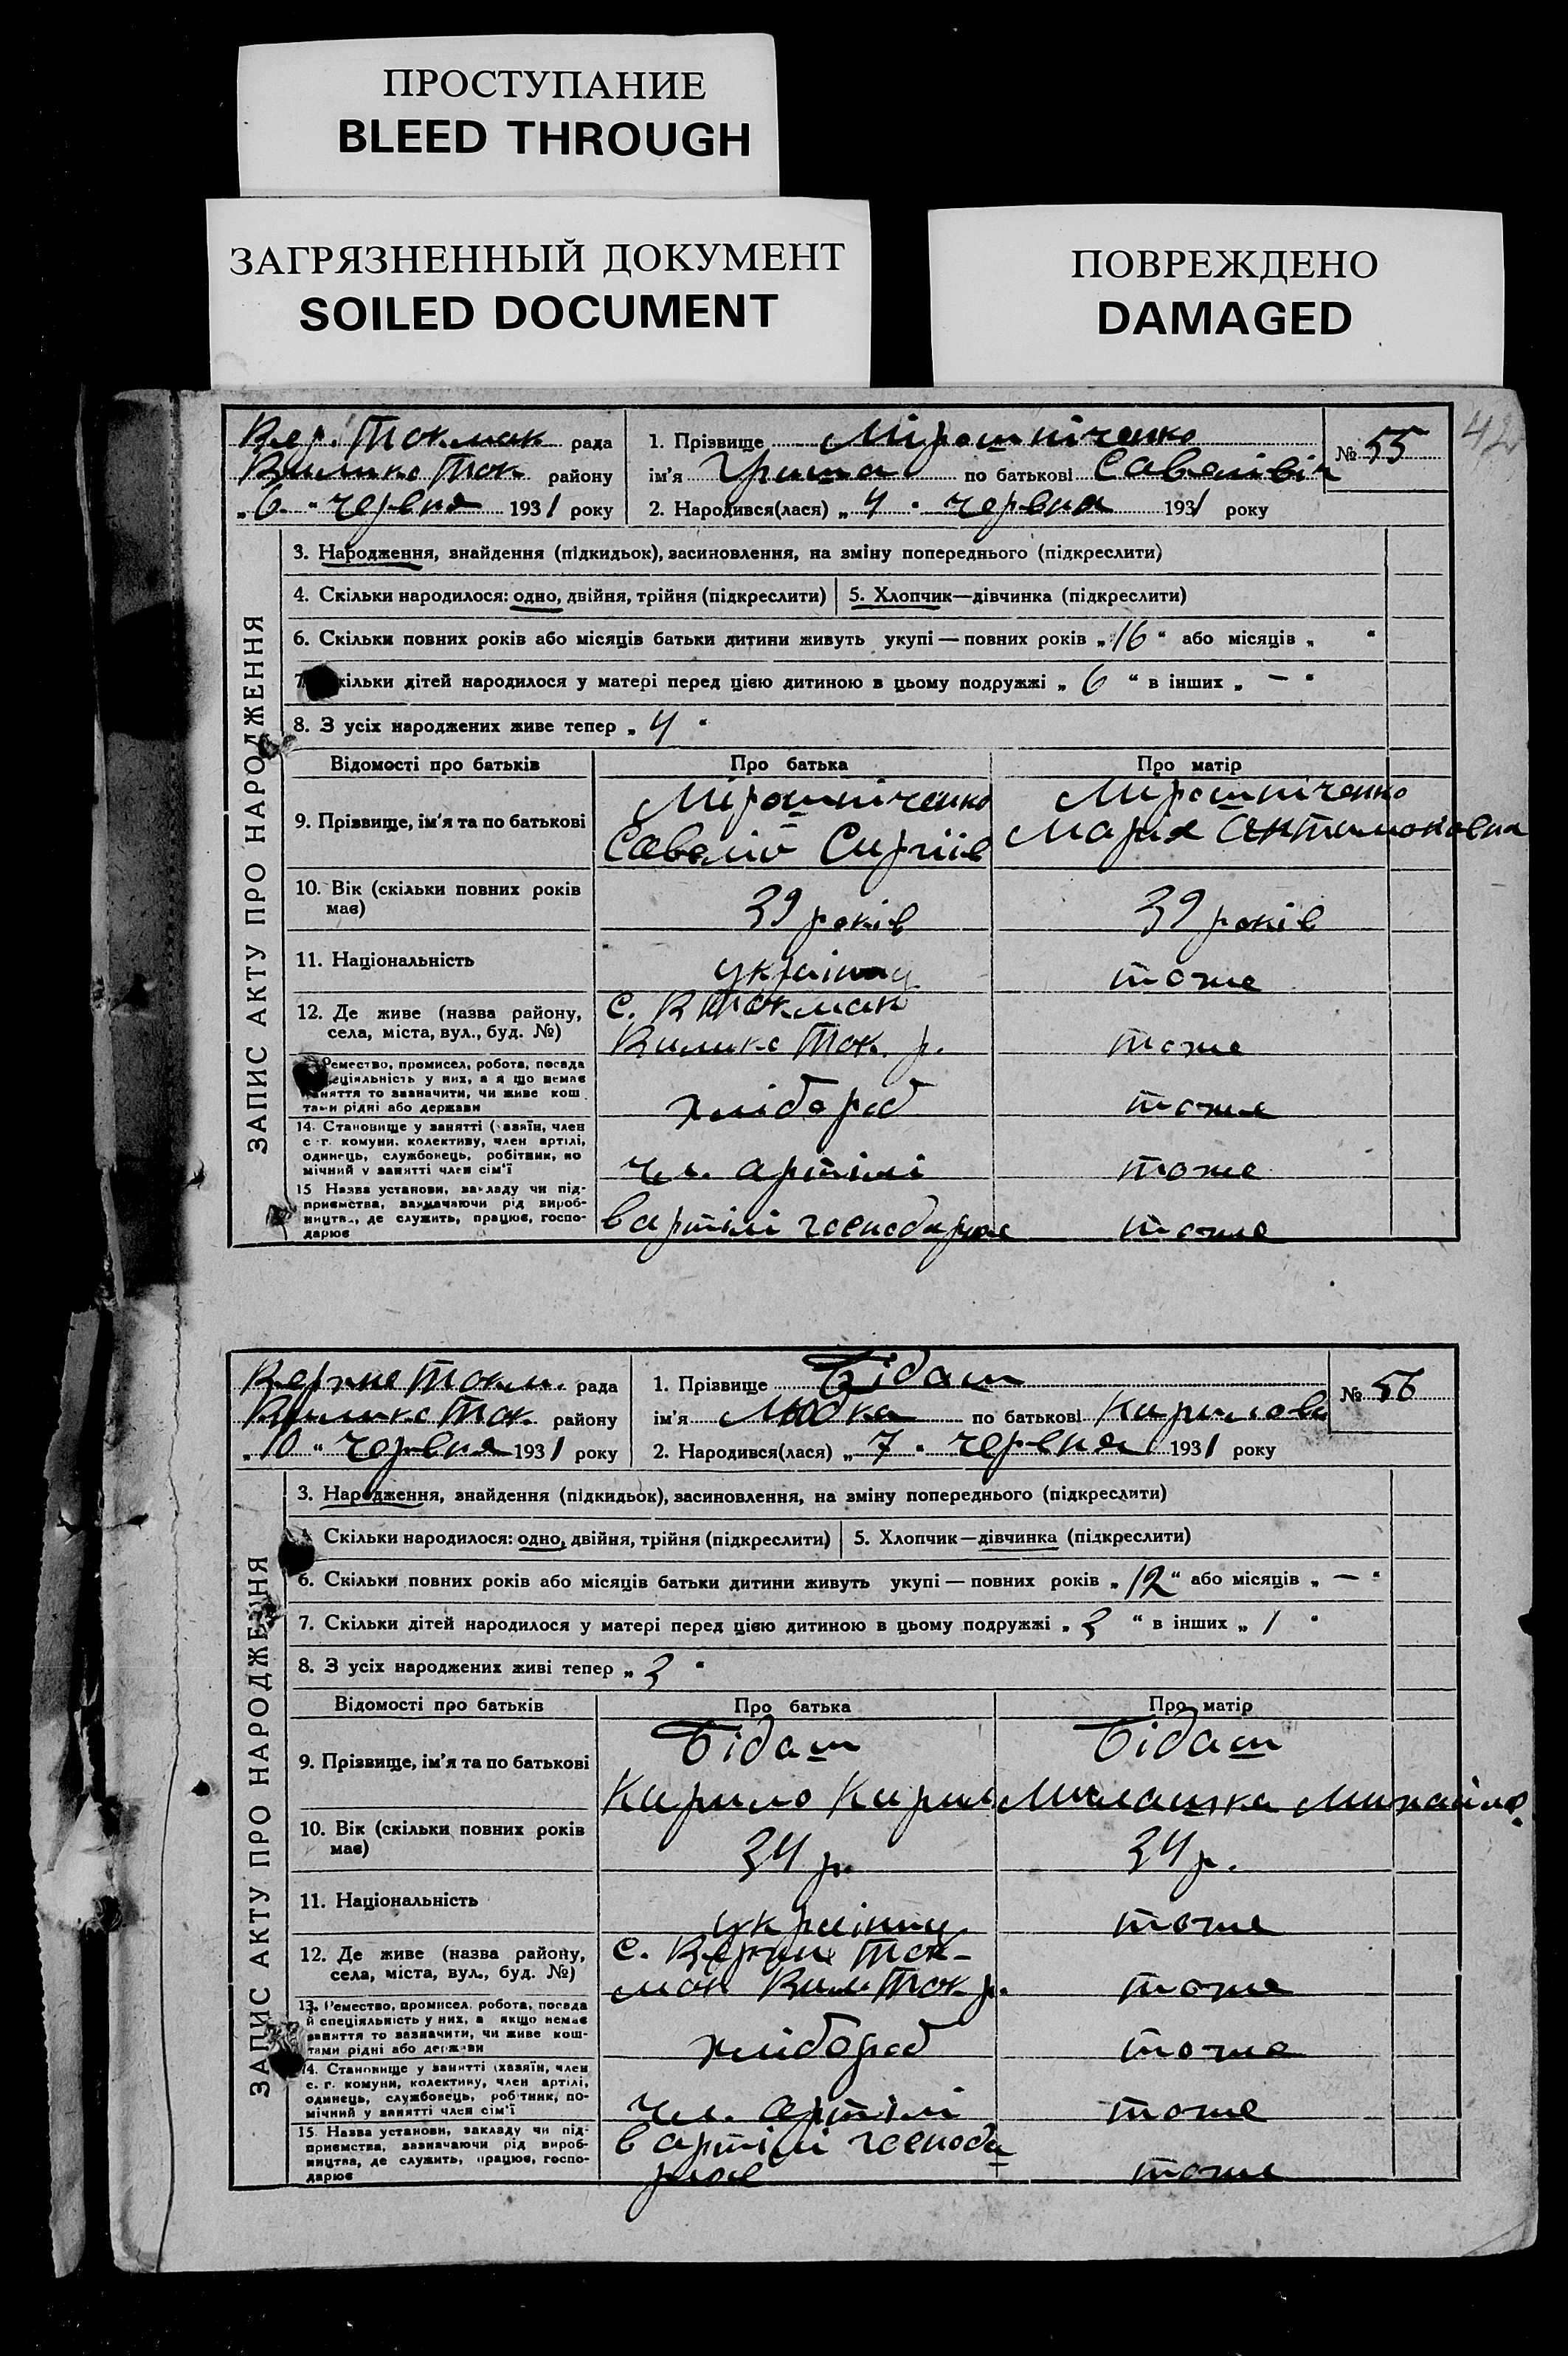 ПРОСТУПАНИЕ
BLEED THROUGH
ЗАГРЯЗНЕННЫЙ ДОКУМЕНТ
SOILED DOCUMENT
ПОВРЕЖДЕНО
DAMAGED
42
Вер. Токмак рада
Вилико Ток району
„6" червня 1931 року
1. Прізвище Мірошніченко
ім'я Гриша по батькові Савелівіч
№ 55
2. Народився(лася) „4" червня 1931 року
ЗАПИС АКТУ ПРО НАРОДЖЕННЯ
3. Народження, знайдення (підкидьок), засиновлення, на зміну попереднього (підкреслити)
4. Скільки народилося: одно, двійня, трійня (підкреслити) 5. Хлопчик—дівчинка (підкреслити)
6. Скільки повних років або місяців батьки дитини живуть укупі — повних років „16" або місяців „ "
7. Скільки дітей народилося у матері перед цією дитиною в цьому подружжі „6" в інших „—"
8. З усіх народжених живе тепер „4"
Відомості про батьків Про батька Про матір
9. Прізвище, ім'я та по батькові
Мірошніченко
Савелій Сиргіїв
Мірошніченко
Марія
10. Вік (скільки повних років має)
39 років 39 років
11. Національність
українц тоже
12. Де живе (назва району, села, міста, вул., буд. №)
с. В Токмак
Вилико Ток. р. тоже
Ремество, промисел, робота, посада
спеціяльність у них, а я що немає
заняття то зазначити, чи живе кош
тами рідні або держави
хлібороб тоже
14. Становище у занятті (хазяїн, член
с г. комуни, колективу, член артілі,
одинець, службовець, робітник, по
мічний у занятті член сім'ї
чл. артілі тоже
15 Назва установи, закладу чи під-
приємства, зазначаючи рід вироб-
ництва, де служить, працює, госпо-
дарює
в артілі господарює тоже
Верхне Токм. рада
Вилико Ток. району
„10" червня 1931 року
1. Прізвище Бідаш
ім'я Людка по батькові Кирилов
№ 56
2. Народився(лася) „7" червня 1931 року
ЗАПИС АКТУ ПРО НАРОДЖЕННЯ
3. Народження, знайдення (підкидьок), засиновлення, на зміну попереднього (підкреслити)
Скільки народилося: одно, двійня, трійня (підкреслити) 5. Хлопчик—дівчинка (підкреслити)
6. Скільки повних років або місяців батьки дитини живуть укупі — повних років „12" або місяців „—"
7. Скільки дітей народилося у матері перед цією дитиною в цьому подружжі „3" в інших „1"
8. З усіх народжених живі тепер „3"
Відомості про батьків Про батька Про матір
9. Прізвище, ім'я та по батькові
Бідаш
Кирило Кирил
Бідаш
Милашка Михайло.
10. Вік (скільки повних років має)
34 р. 34 р.
11. Національність
українц тоже
12. Де живе (назва району, села, міста, вул., буд. №)
с. Верхне Ток-
мак Вил. Ток р. тоже
13. Ремество, промисел, робота, посада
й спеціяльність у них, а якщо немає
заняття то зазначити, чи живе кош-
тами рідні або держави
хлібороб тоже
14. Становище у занятті (хазяїн, член
с. г. комуни, колективу, член артілі,
одинець, службовець, робітник, по-
мічний у занятті член сім'ї
чл. артілі тоже
15. Назва установи, закладу чи під-
приємства, зазначаючи рід вироб-
ництва, де служить, працює, госпо-
дарює
в артілі господа
рює тоже